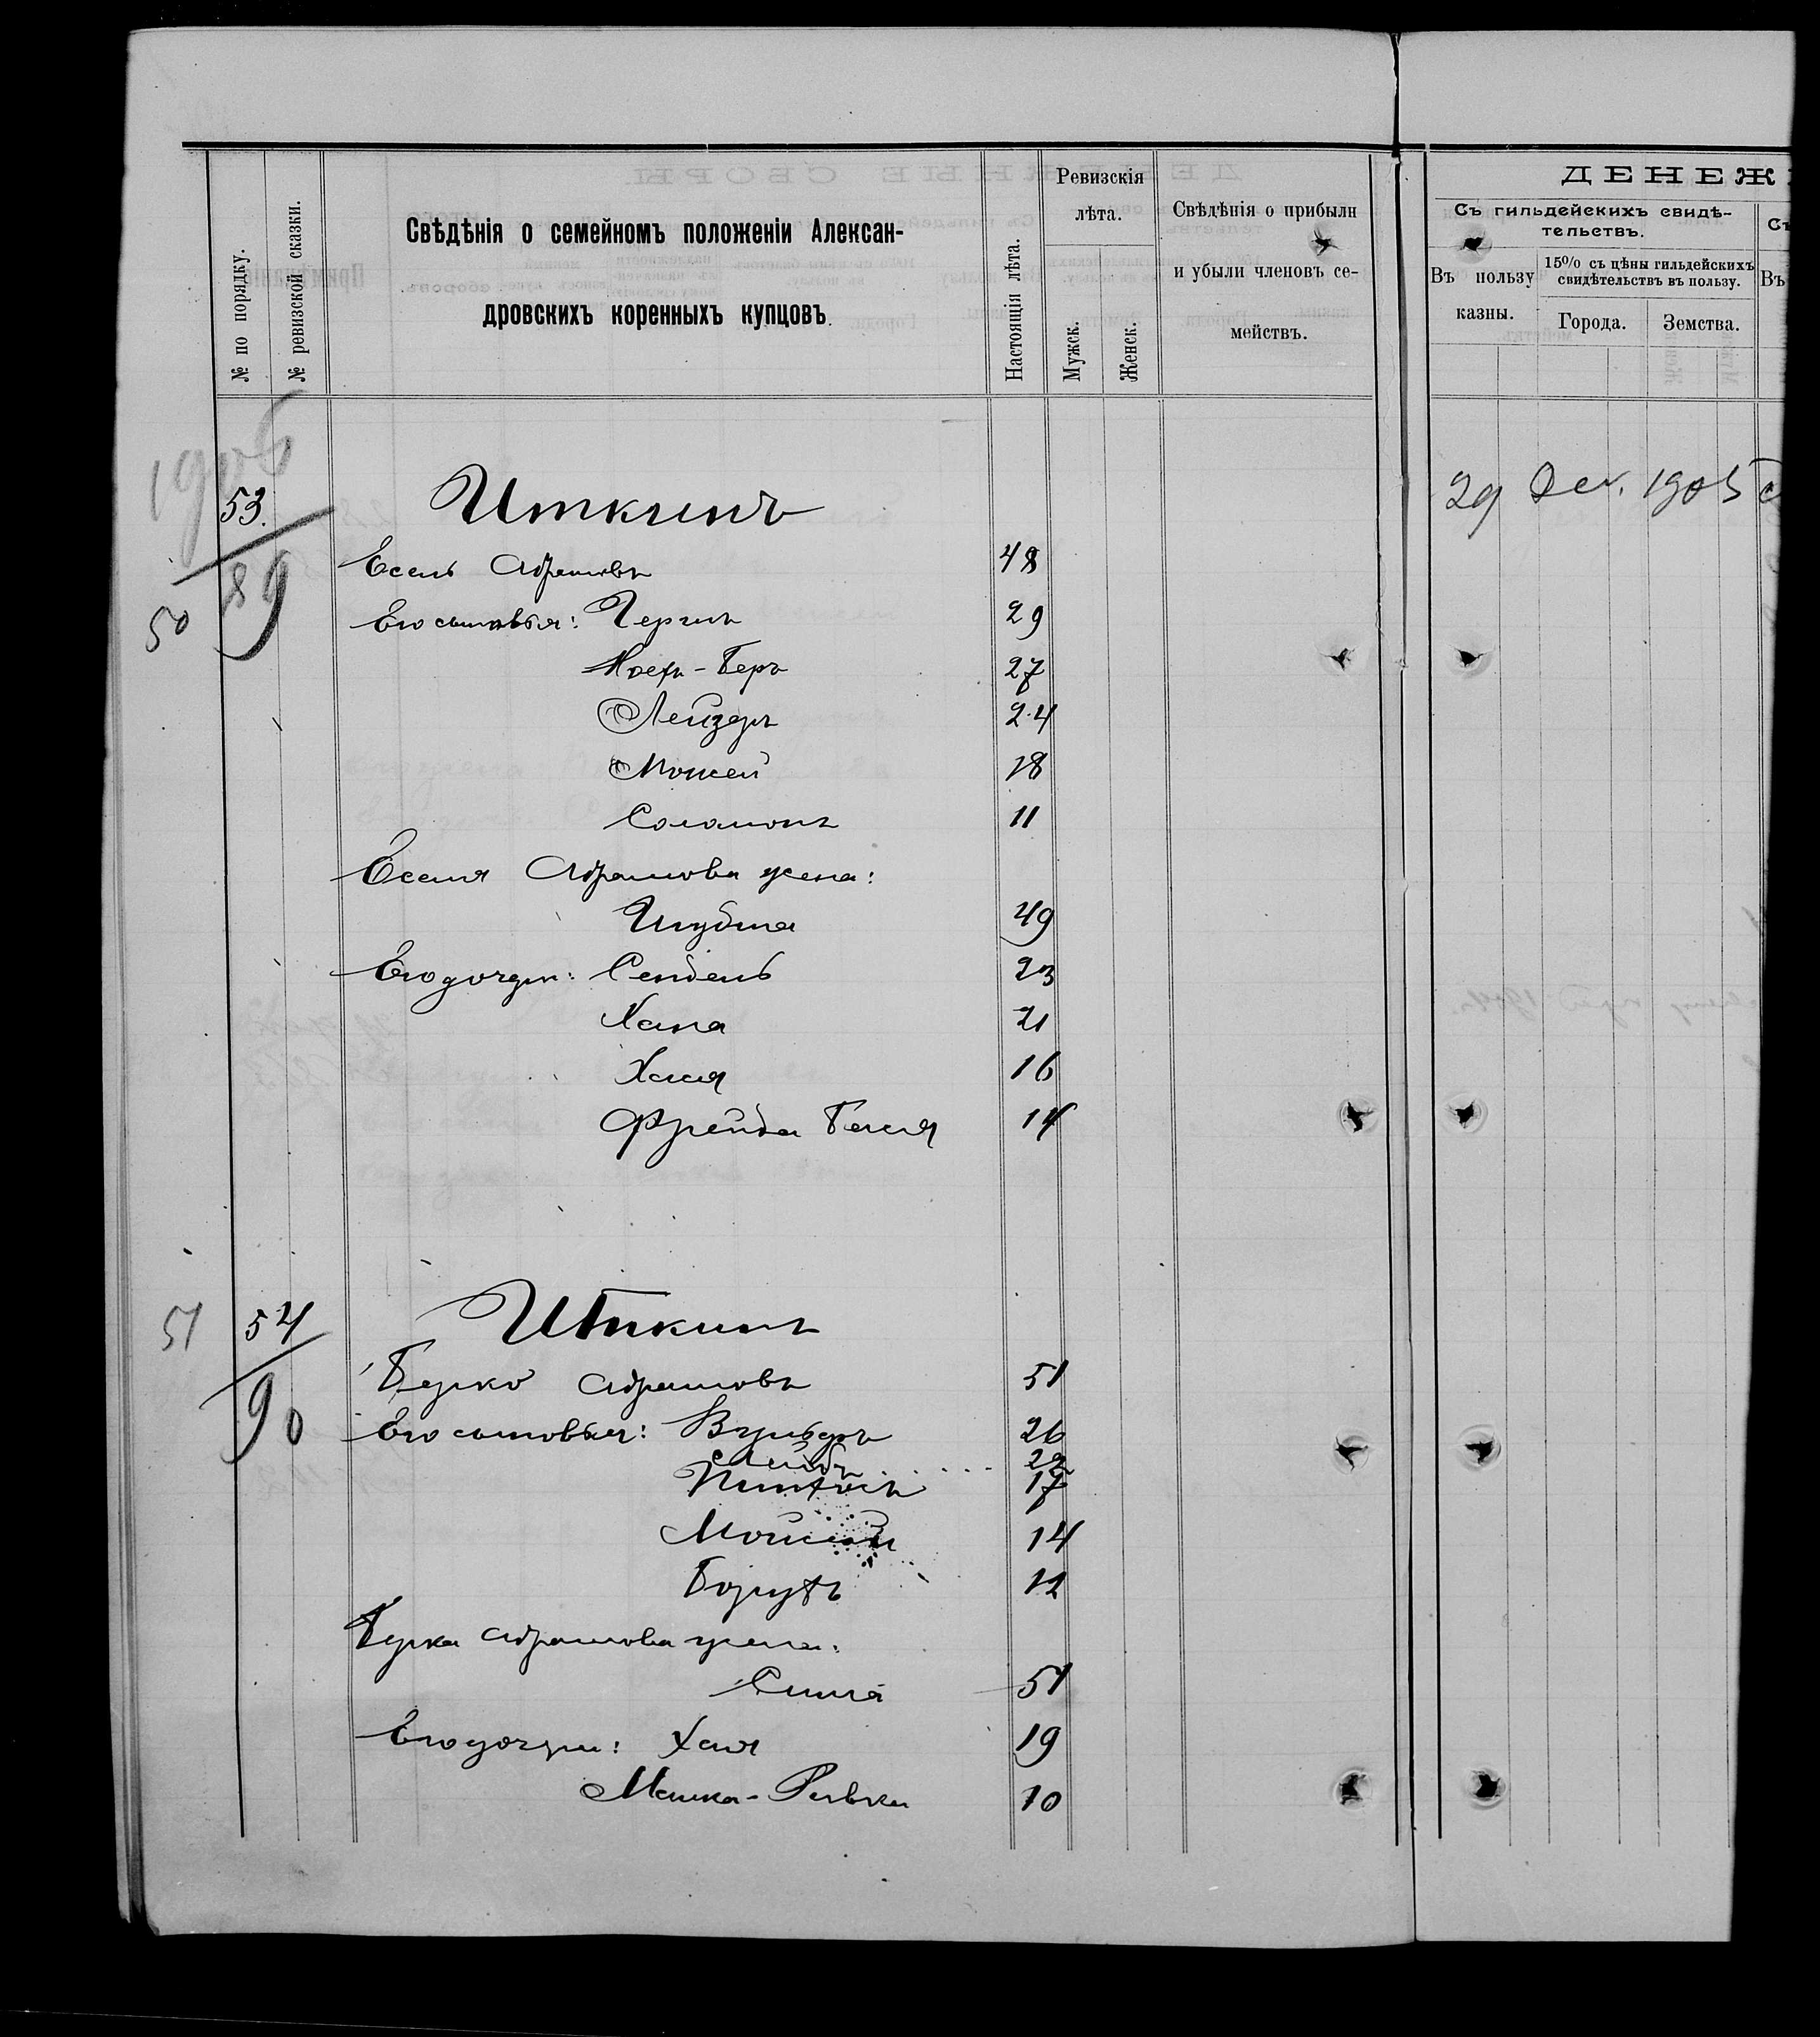 № по порядку.
№ ревизской сказки.
Свѣдѣнія о семейномъ положеніи Алексан-
дровскихъ коренныхъ купцовъ.
Настоящія лѣта.
Ревизскія
лѣта.
Мужск.
Женск.
Свѣдѣнія о прибыли
и убыли членовъ се-
мействъ.
ДЕНЕЖ
Съ гильдейскихъ свидѣ-
тельствъ.
Въ пользу
казны.
15% съ цѣны гильдейскихъ
свидѣтельствъ въ пользу.
Города.
Земства.
Въ
1906
53. Иткинъ
29 Дек. 1905
89
50
Есель Абрамовъ 48
Его сыновья: Герцъ 29
Ноехъ-Беръ 27
Лейзеръ 24
Мовшей 18
Соломонъ 11
Еселя Абрамова жена:
49
Его дочери: Сендель 23
Хана 21
Хася 16
Фрейда Бася 14
51
54 Иткинъ
90
Берко Абрамовъ 51
Его сыновья: Вульфъ 26
Лейба 22
Пинхосъ 17
Мойсей 14
Борухъ 12
Берка Абрамова жена:
Сима 51
Его дочери: Хая 19
Машка-Ривка 10